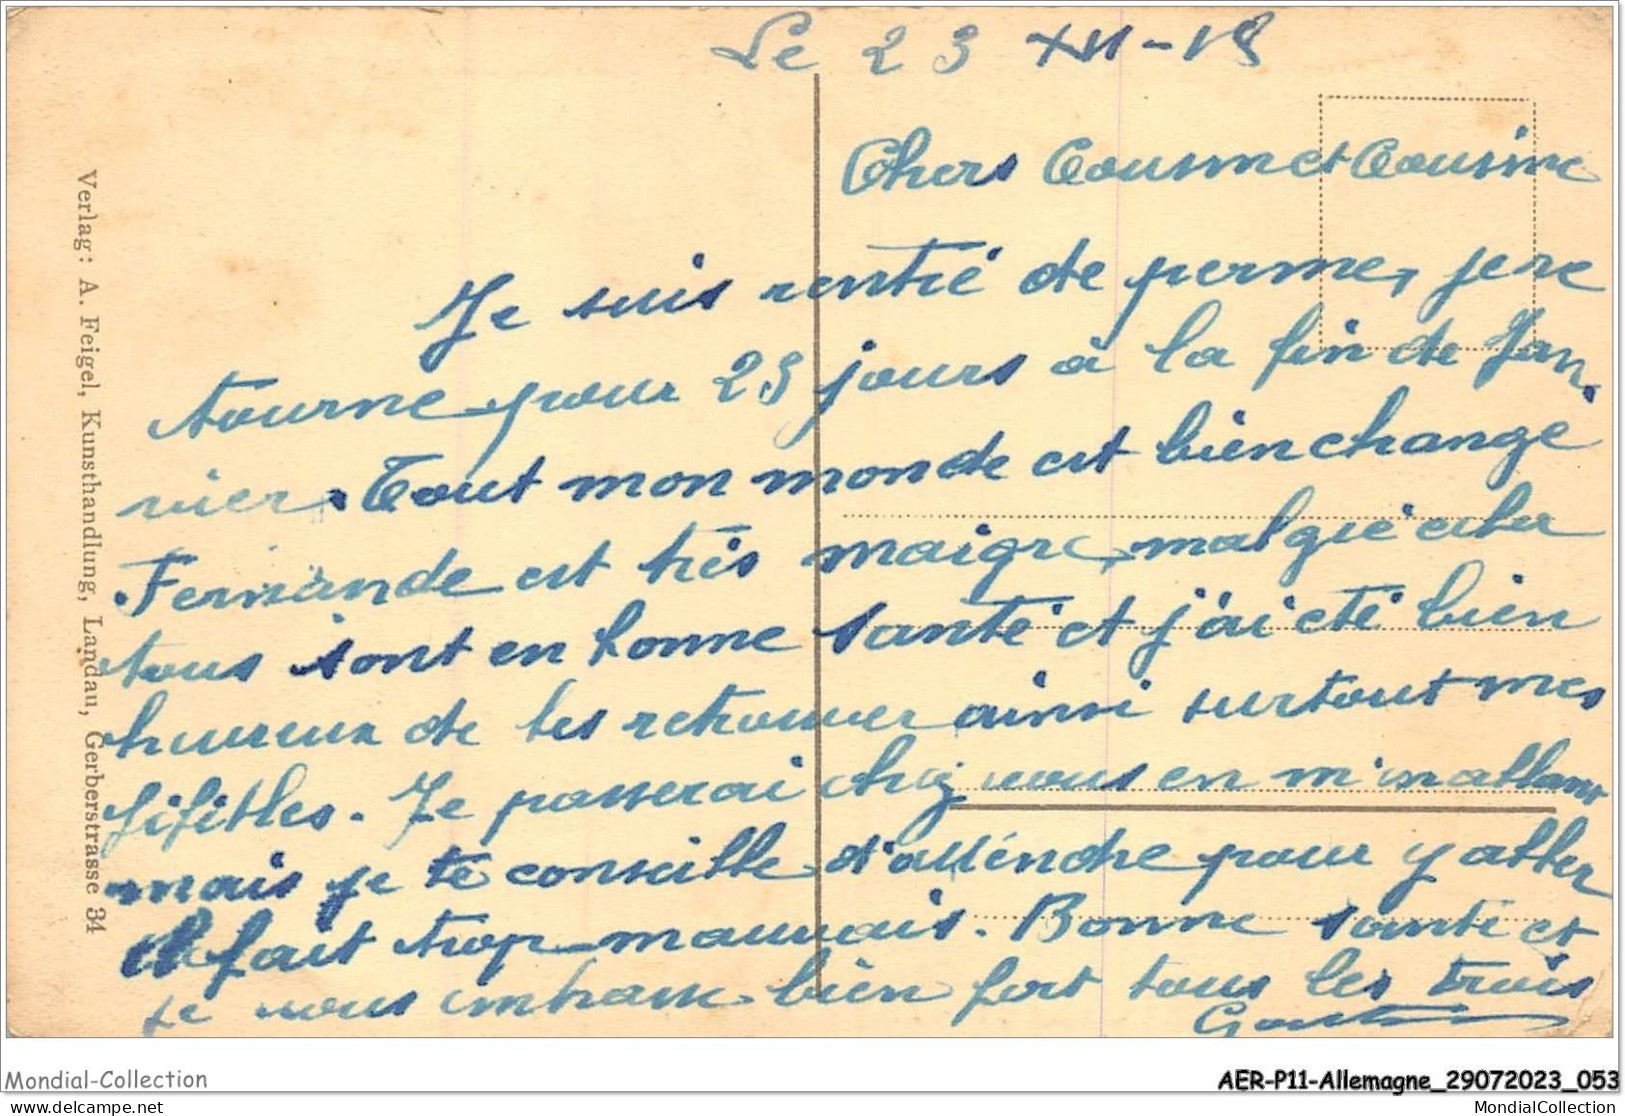 Le 23 XII-18
Chers Cousin et Cousine
Je suis rentré de perme, je re
tourne pour 23 jours à la fin de Jan.
vier. Tout mon monde est bien changé
Fernande est très maigre, malgré cela
tous sont en bonne santé et j'ai été bien
heureux de les retrouver ainsi surtout mes
fifilles. Je passerai chez vous en m'en allant
mais je te conseille d'attendre pour y aller
il fait trop mauvais. Bonne santé et
je vous embrasse bien fort tous les trois
Gaston
Verlag: A. Feigel, Kunsthandlung, Landau, Gerberstrasse 34
Mondial-Collection
AER-P11-Allemagne_29072023_053
delcampe.net
MondialCollection